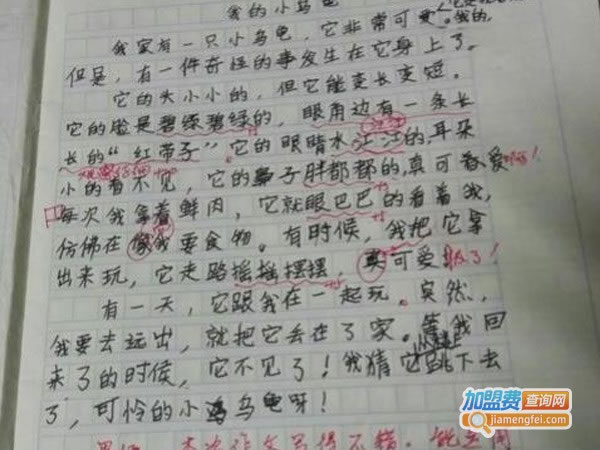 我的小乌龟
我家有一只小乌龟，它非常可爱。我的，
但是，有一件奇怪的事发生在它身上了。
它的头小小的，但它能变长变短。
它的脸是碧绿碧绿的，眼角边有一条长
长的“红带子”。它的眼睛水汪汪的，耳朵
小的看不见，它的鼻子胖都都的，真可爱啊！
每次我拿着鲜肉，它就眼巴巴的看着我，
仿佛在像我要食物。有时候，我把它拿
出来玩，它走路摇摇摆摆，真可爱极了！
有一天，它跟我在一起玩。突然，
我要去远出，就把它丢在了家。等我回
来了的时候，它不见了！我猜它跳下去
了，可怜的小乌龟呀！
本次作文写得不错，能运用
加盟费查询网
jiamengfei.com